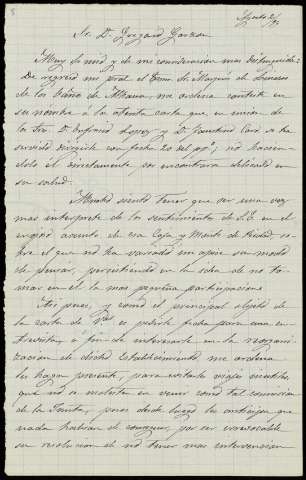 Agosto 2/95
Sr. D. Lizgand Garzon
Muy Sr. mio y de mi consideracion mas distinguida:
De regreso me trae el Excmo. Sr. Marqués de Linares
de los Baños de Alhama, me ordena conteste en
su nombre á la atenta carta que en union de
los Sres. D. Eufrasio Lopez y D. Faustino Caro se ha
servido dirigirle con fecha 20 del ppº; no hacien-
dolo él directamente por encontrarse delicado en
su salud.
Mucho siento tener que ser una vez
mas interprete de los sentimientos de S.E. en el
enojoso asunto de esa Caja y Monte de Piedad, so-
bre el que no ha variado en apice su modo
de pensar, persistiendo en la idea de no to-
mar en él la mas pequeña participacion.
Asi pues, y como el principal objeto de
la carta de Vdes. es pedirle fecha para una en-
trevista, á fin de interesarle en la reorgani-
zacion de dicho Establecimiento, me ordena
les haga presente, para evitarles viajes inutiles,
que no se molesten en venir como tal comision
de la Junta, pues desde luego les anticipa que
nada habrian de conseguir, por ser irrevocable
su resolucion el no tener mas intervencion